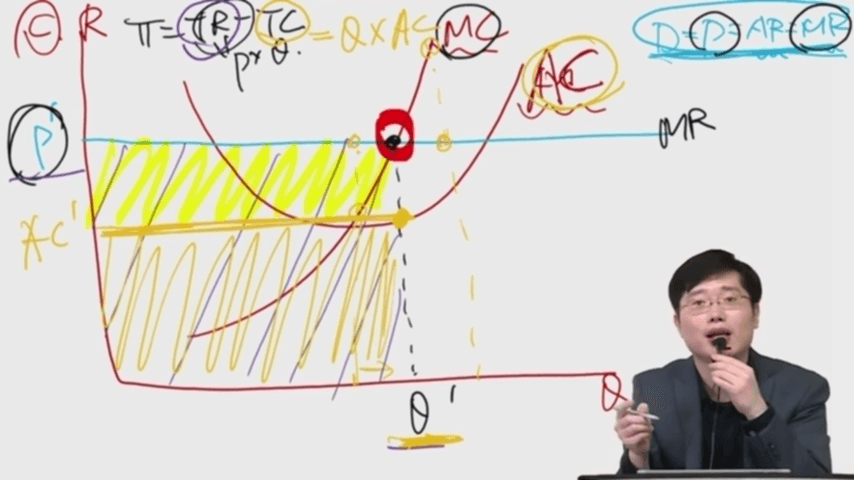 C R
π = TR - TC = Q x AC
P x Q.
MC
D = P = AR = MR
AC
P'
MR
AC'
Q'
Q